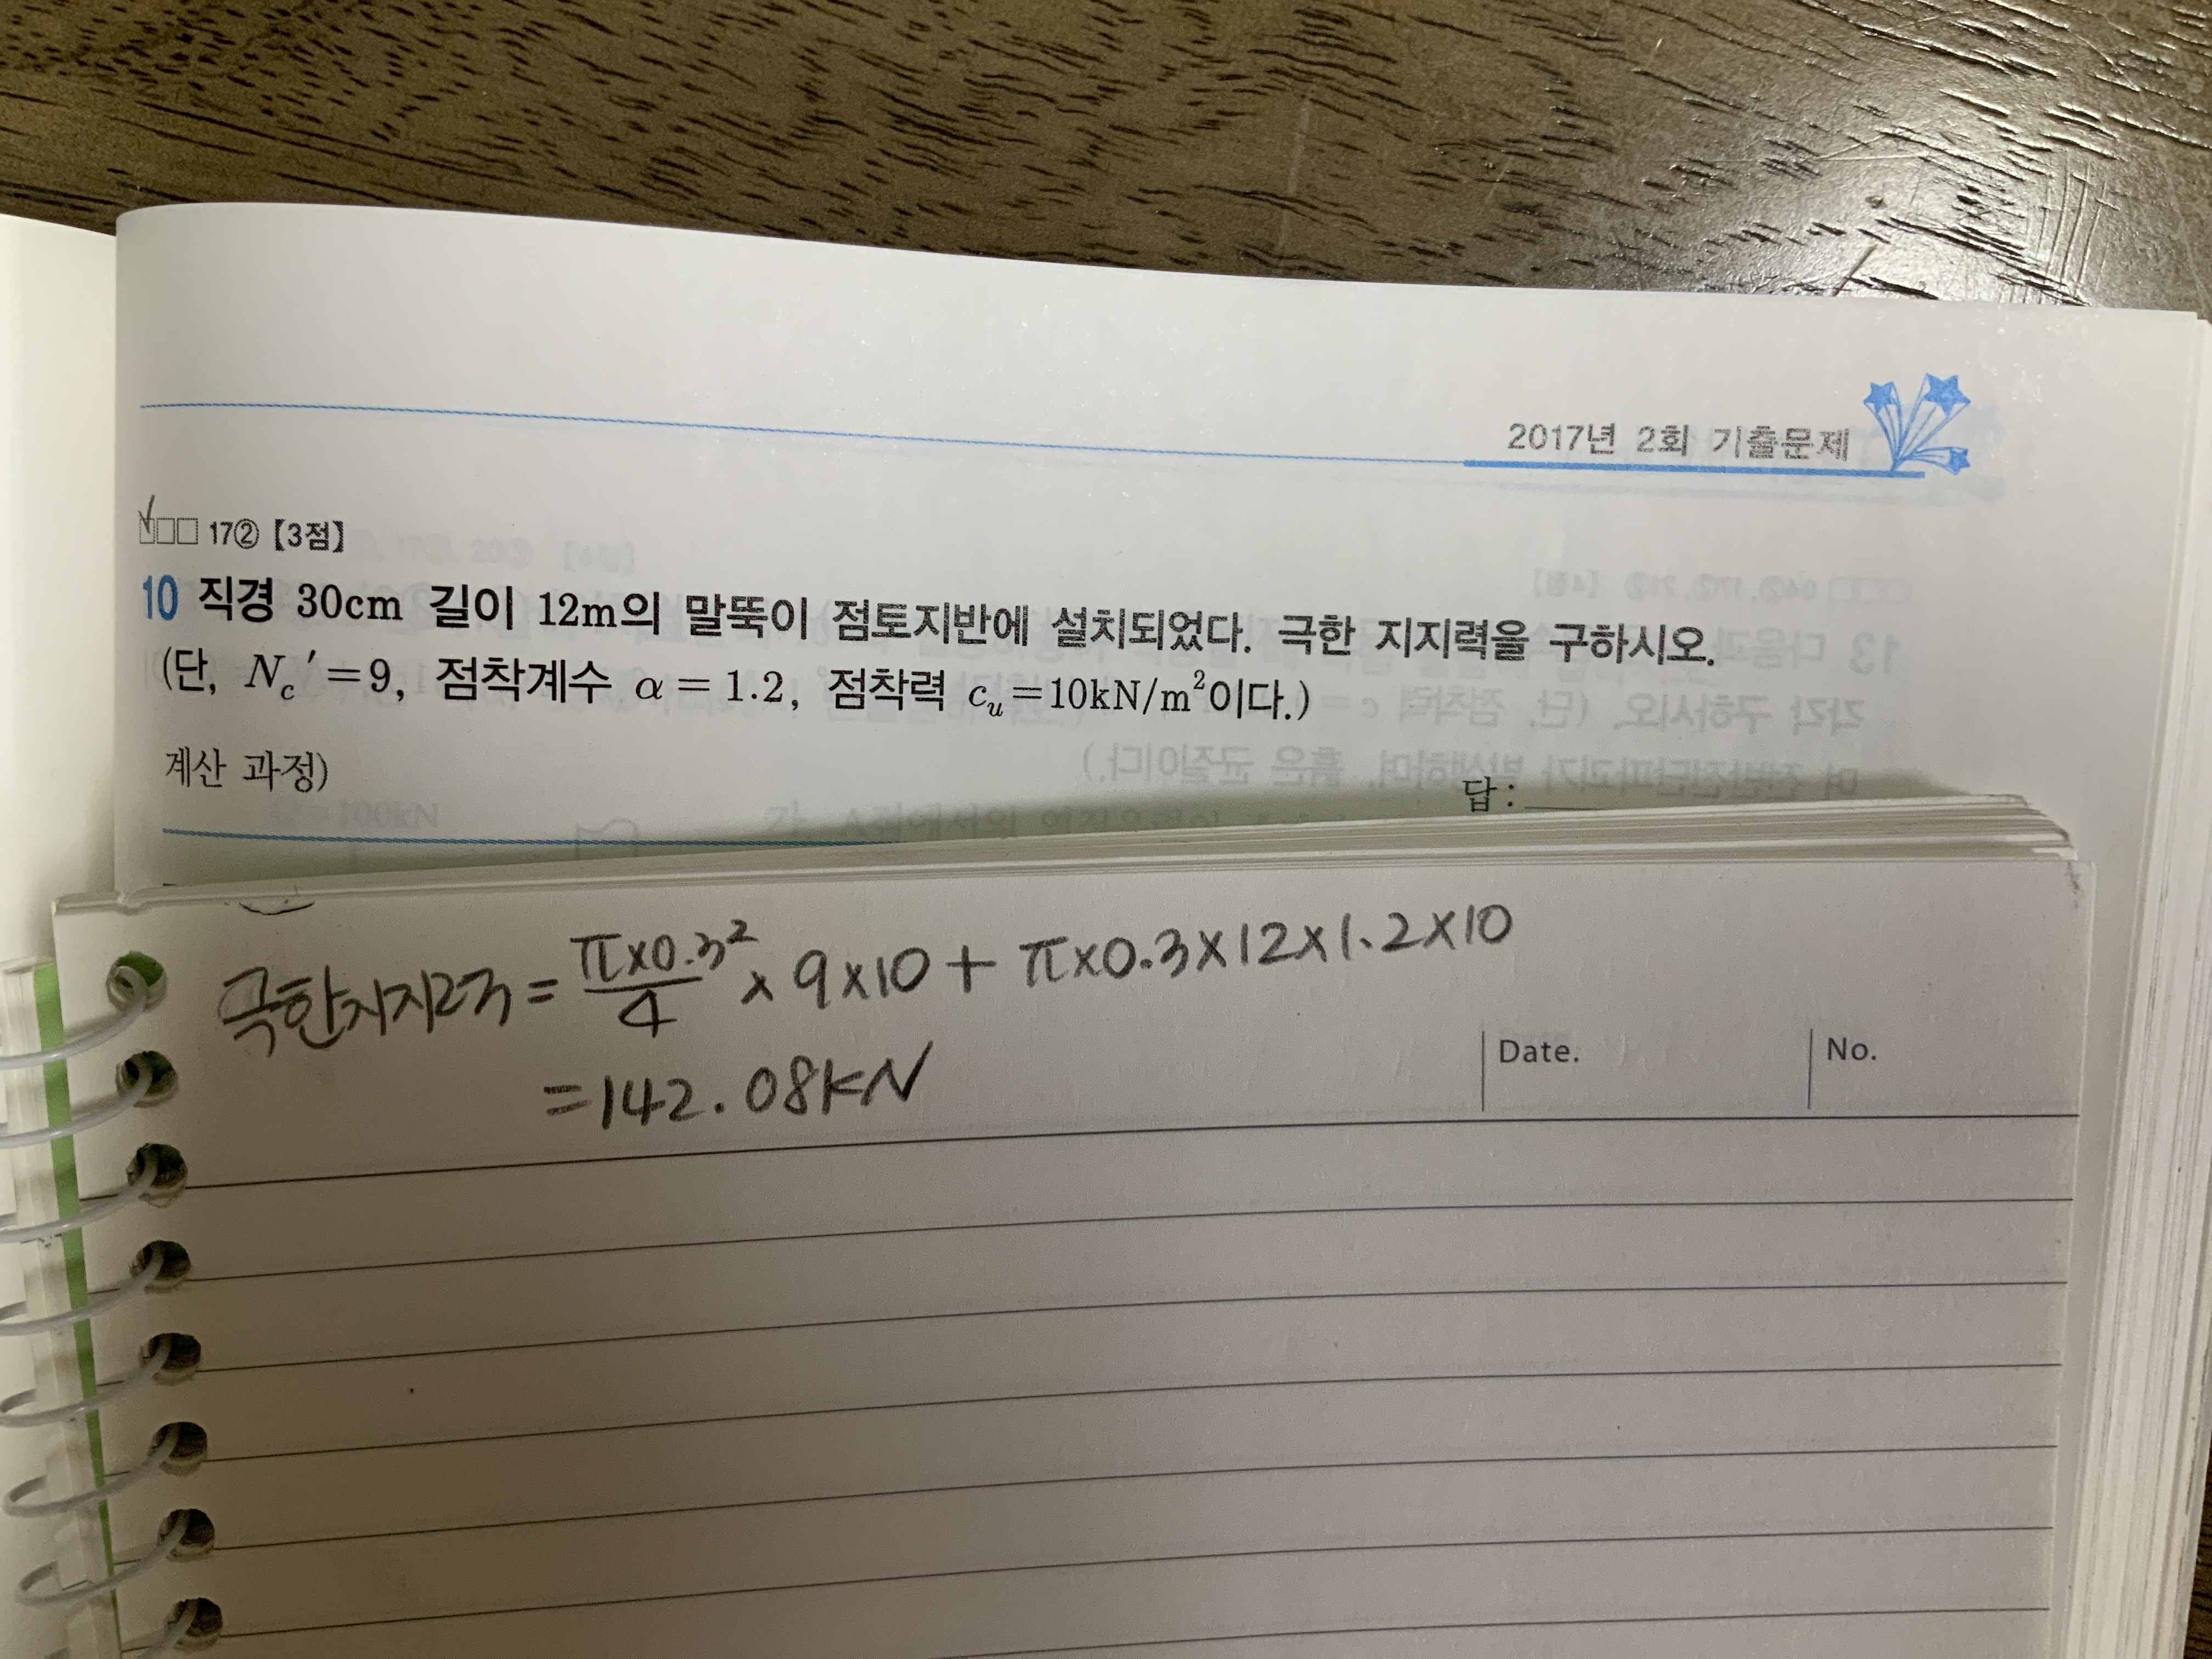 2017년 2회 기출문제
17② 【3점】
10 직경 30cm 길이 12m의 말뚝이 점토지반에 설치되었다. 극한 지지력을 구하시오.
(단, N_c′=9, 점착계수 α=1.2, 점착력 c_u=10kN/m²이다.)
계산 과정)
답:
극한지지력 = π×0.3²/4 × 9×10 + π×0.3×12×1.2×10
=142.08kN
Date.
No.